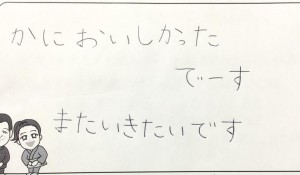 かにおいしかった
でーす
またいきたいです